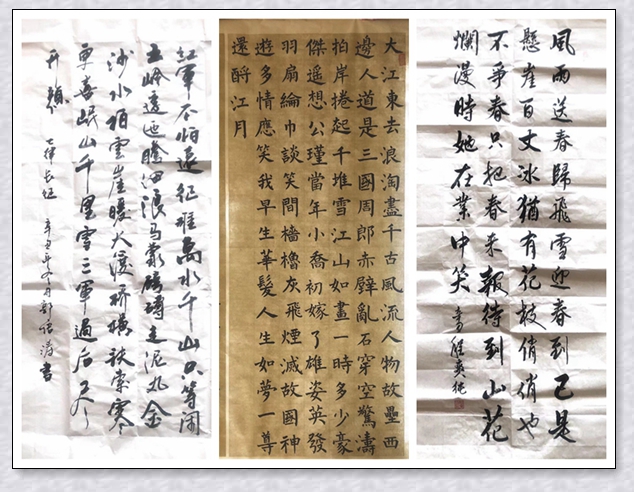 風雨送春歸飛雪迎春到已是
懸崖百丈冰猶有花枝俏俏也
不爭春只把春来報待到山花
爛漫時她在業中笑
大江東去浪淘盡千古風流人物故壘西
邊人道是三國周郎赤壁亂石穿空驚濤
拍岸捲起千堆雪江山如畫一時多少豪
傑遥想公瑾當年小喬初嫁了雄姿英發
羽扇綸巾談笑間檣櫓灰飛煙滅故國神
遊多情應笑我早生華髮人生如夢一尊
還酹江月
紅軍不怕遠征難萬水千山只等闲
五岭逶迤騰细浪烏蒙磅礴走泥丸金
沙水拍雲崖暖大渡桥横铁索寒
更喜岷山千里雪三軍過后尽
开颜 七律长征 辛丑年 書